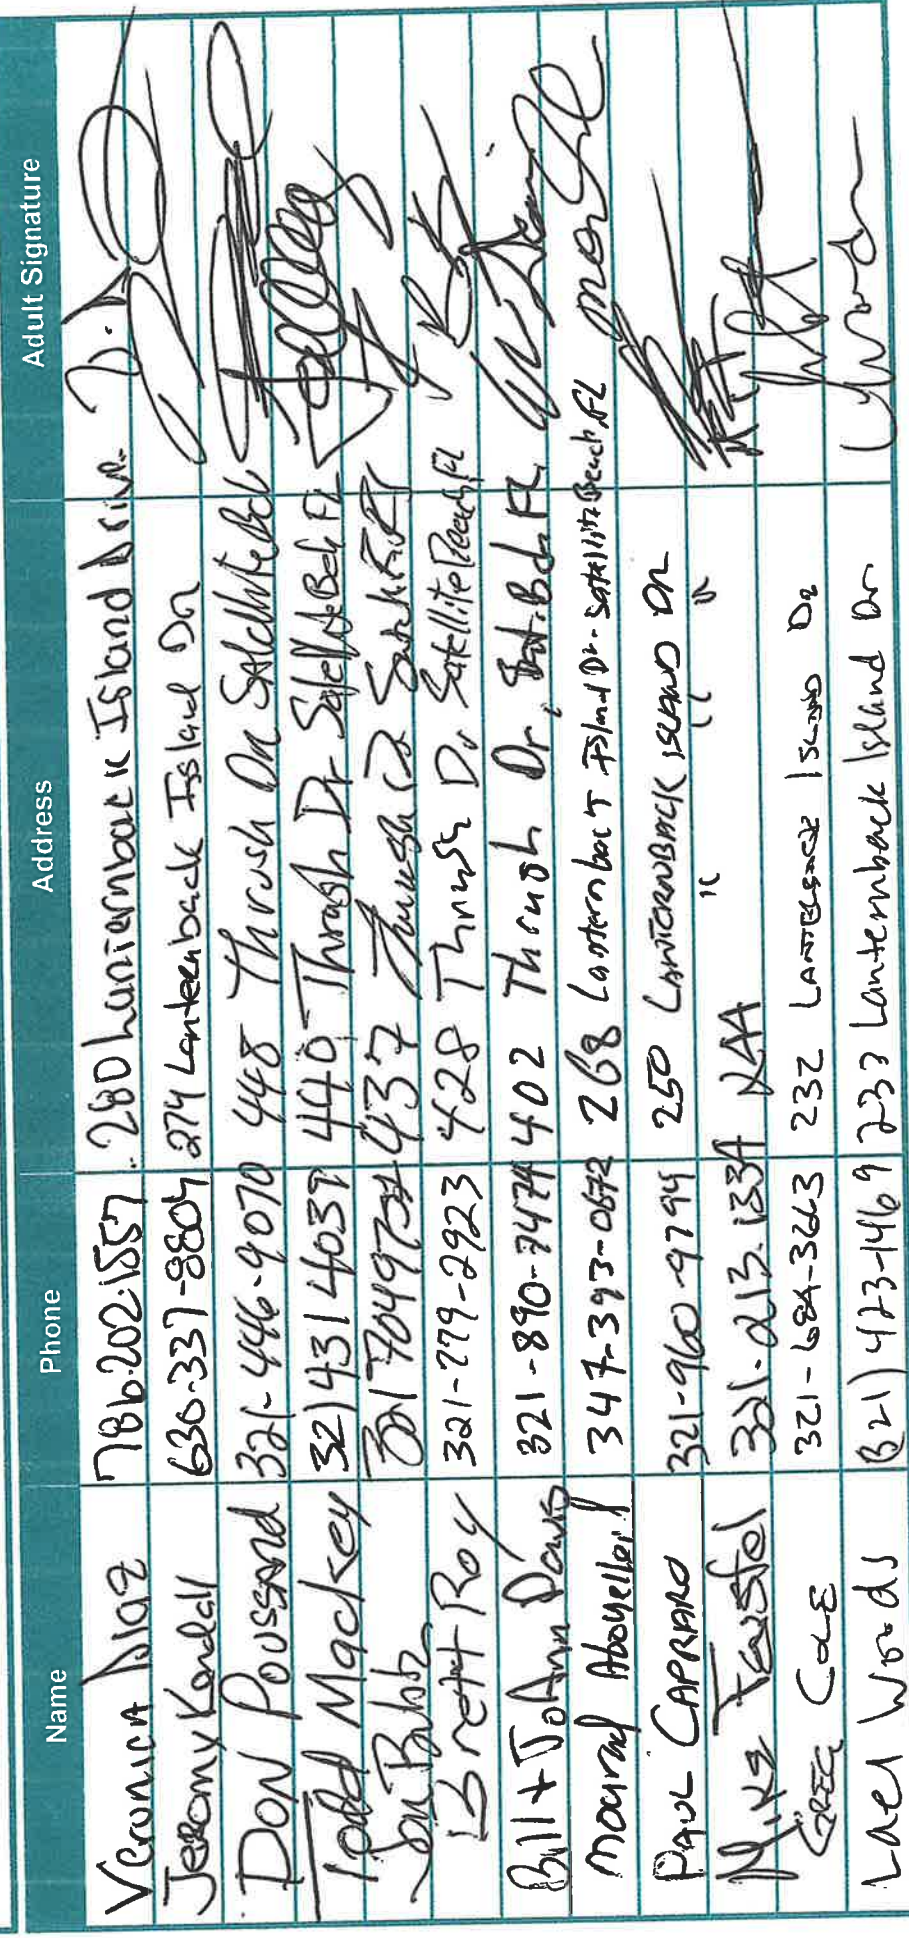 Name Phone Address Adult Signature
Veronica Diaz 786.202.1557 280 Lanternback Island Drive
Jeromy Kendall 630-337-8804 274 Lanternback Island Dr
Don Poussard 321-446-9070 448 Thrush Dr Satellite Bch
Todd Mackey 321 431 4039 440 Thrush Dr Satellite Bch FL
437 Thrush Dr
Brett Roy 321-279-2923 428 Thrush Dr Satellite Beach Fl
Bill + JoAnn Davis 321-890-7474 402 Thrush Dr, Sat. Bch FL
Mourad 347-393-0672 268 Lanternback Island Dr. Satellite Beach, FL
Paul CAPRARO 321-960-9799 250 LANTERNBACK ISLAND Dr
Mike 321-213-1334 244 " " "
GREG COLE 321-684-3663 232 Island Dr
Lael Woods (321) 423-1469 233 Lanternback Island Dr